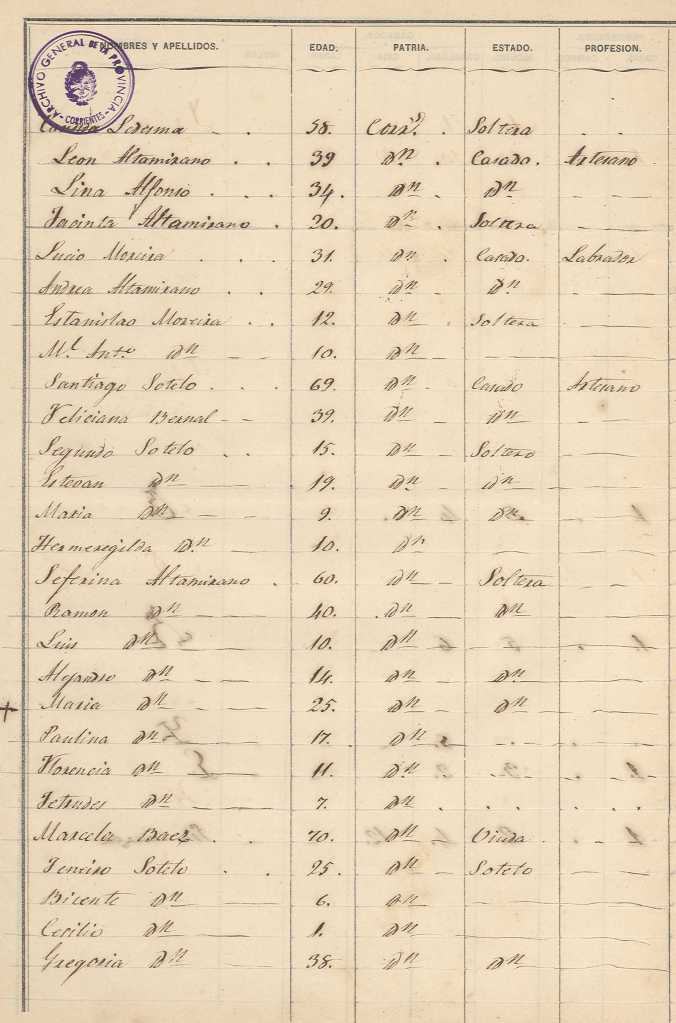 NOMBRES Y APELLIDOS. EDAD. PATRIA. ESTADO. PROFESION.
ARCHIVO GENERAL DE LA PROVINCIA - CORRIENTES -
Ledesma 58. Corr.s Soltera
Leon Altamirano 39 Dn Casado. Artesano
Lina Alfonso 34. Dn Dn
Jacinta Altamirano 20. Dn Soltera
Lucio Moreira 31. Dn Casado. Labrador
Andrea Altamirano 29. Dn Dn
Estanislao Moreira 12. Dn Soltera
M.l Ant.o Dn 10. Dn
Santiago Sotelo 69. Dn Casado Artesano
Feliciana Bernal 39. Dn Dn
Segundo Sotelo 15. Dn Soltero
Estevan Dn 19. Dn Dn
Maria Dn 9. Dn Dn
Hermeregilda Dn 10. Dn
Seferina Altamirano 60. Dn Soltera
Ramon Dn 40. Dn Dn
Luis Dn 10. Dn
Alejandro Dn 14. Dn Dn
+ Maria Dn 25. Dn Dn
Paulina Dn 17. Dn
Florencia Dn 11. Dn
Jetrudes Dn 7. Dn
Marcela Baez 70. Dn Viuda
Sotelo 25. Dn Sotelo
Bicente Dn 6. Dn
Cecilio Dn 1. Dn
Gregoria Dn 38. Dn Dn